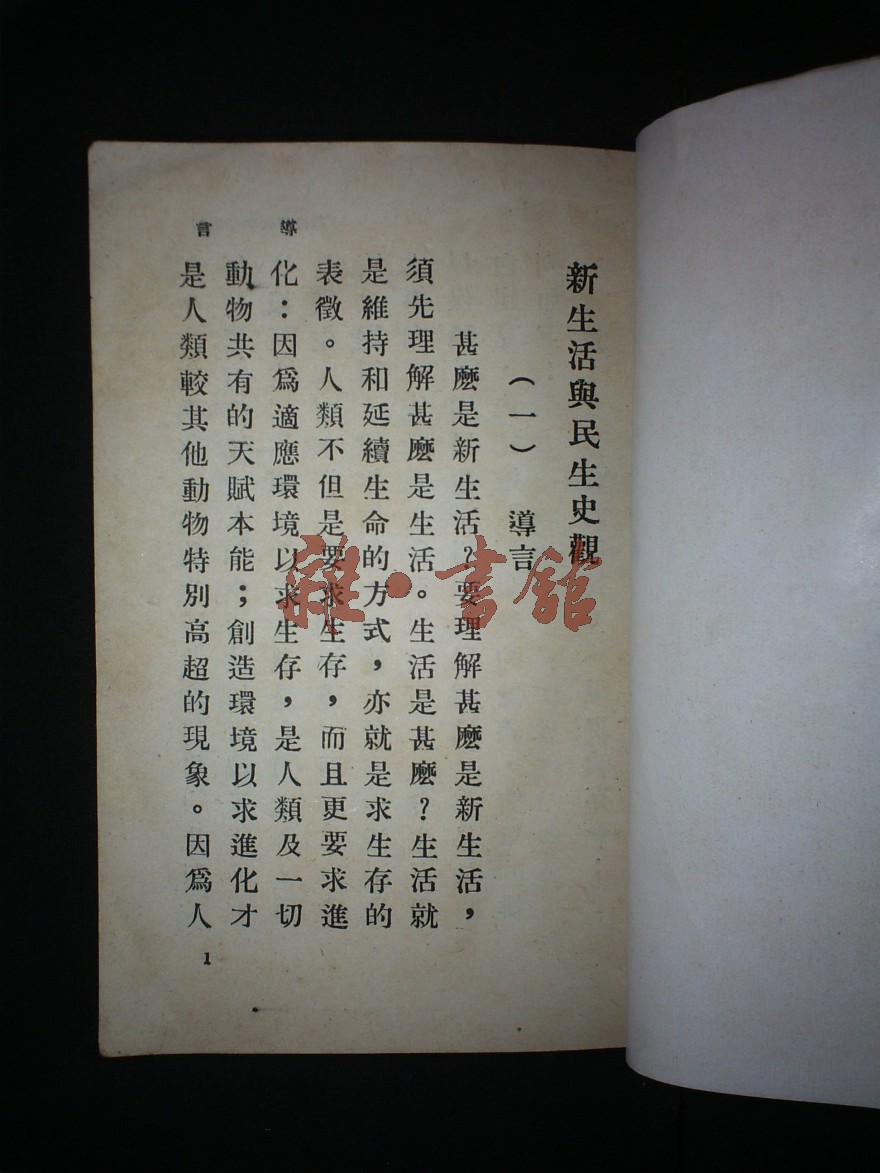 新生活與民生史觀
（一） 導言
甚麽是新生活？要理解甚麽是新生活，
須先理解甚麽是生活。生活是甚麽？生活就
是維持和延續生命的方式，亦就是求生存的
表徵。人類不但是要求生存，而且更要求進
化：因爲適應環境以求生存，是人類及一切
動物共有的天賦本能；創造環境以求進化才
是人類較其他動物特別高超的現象。因爲人
導言
1
雜·書館